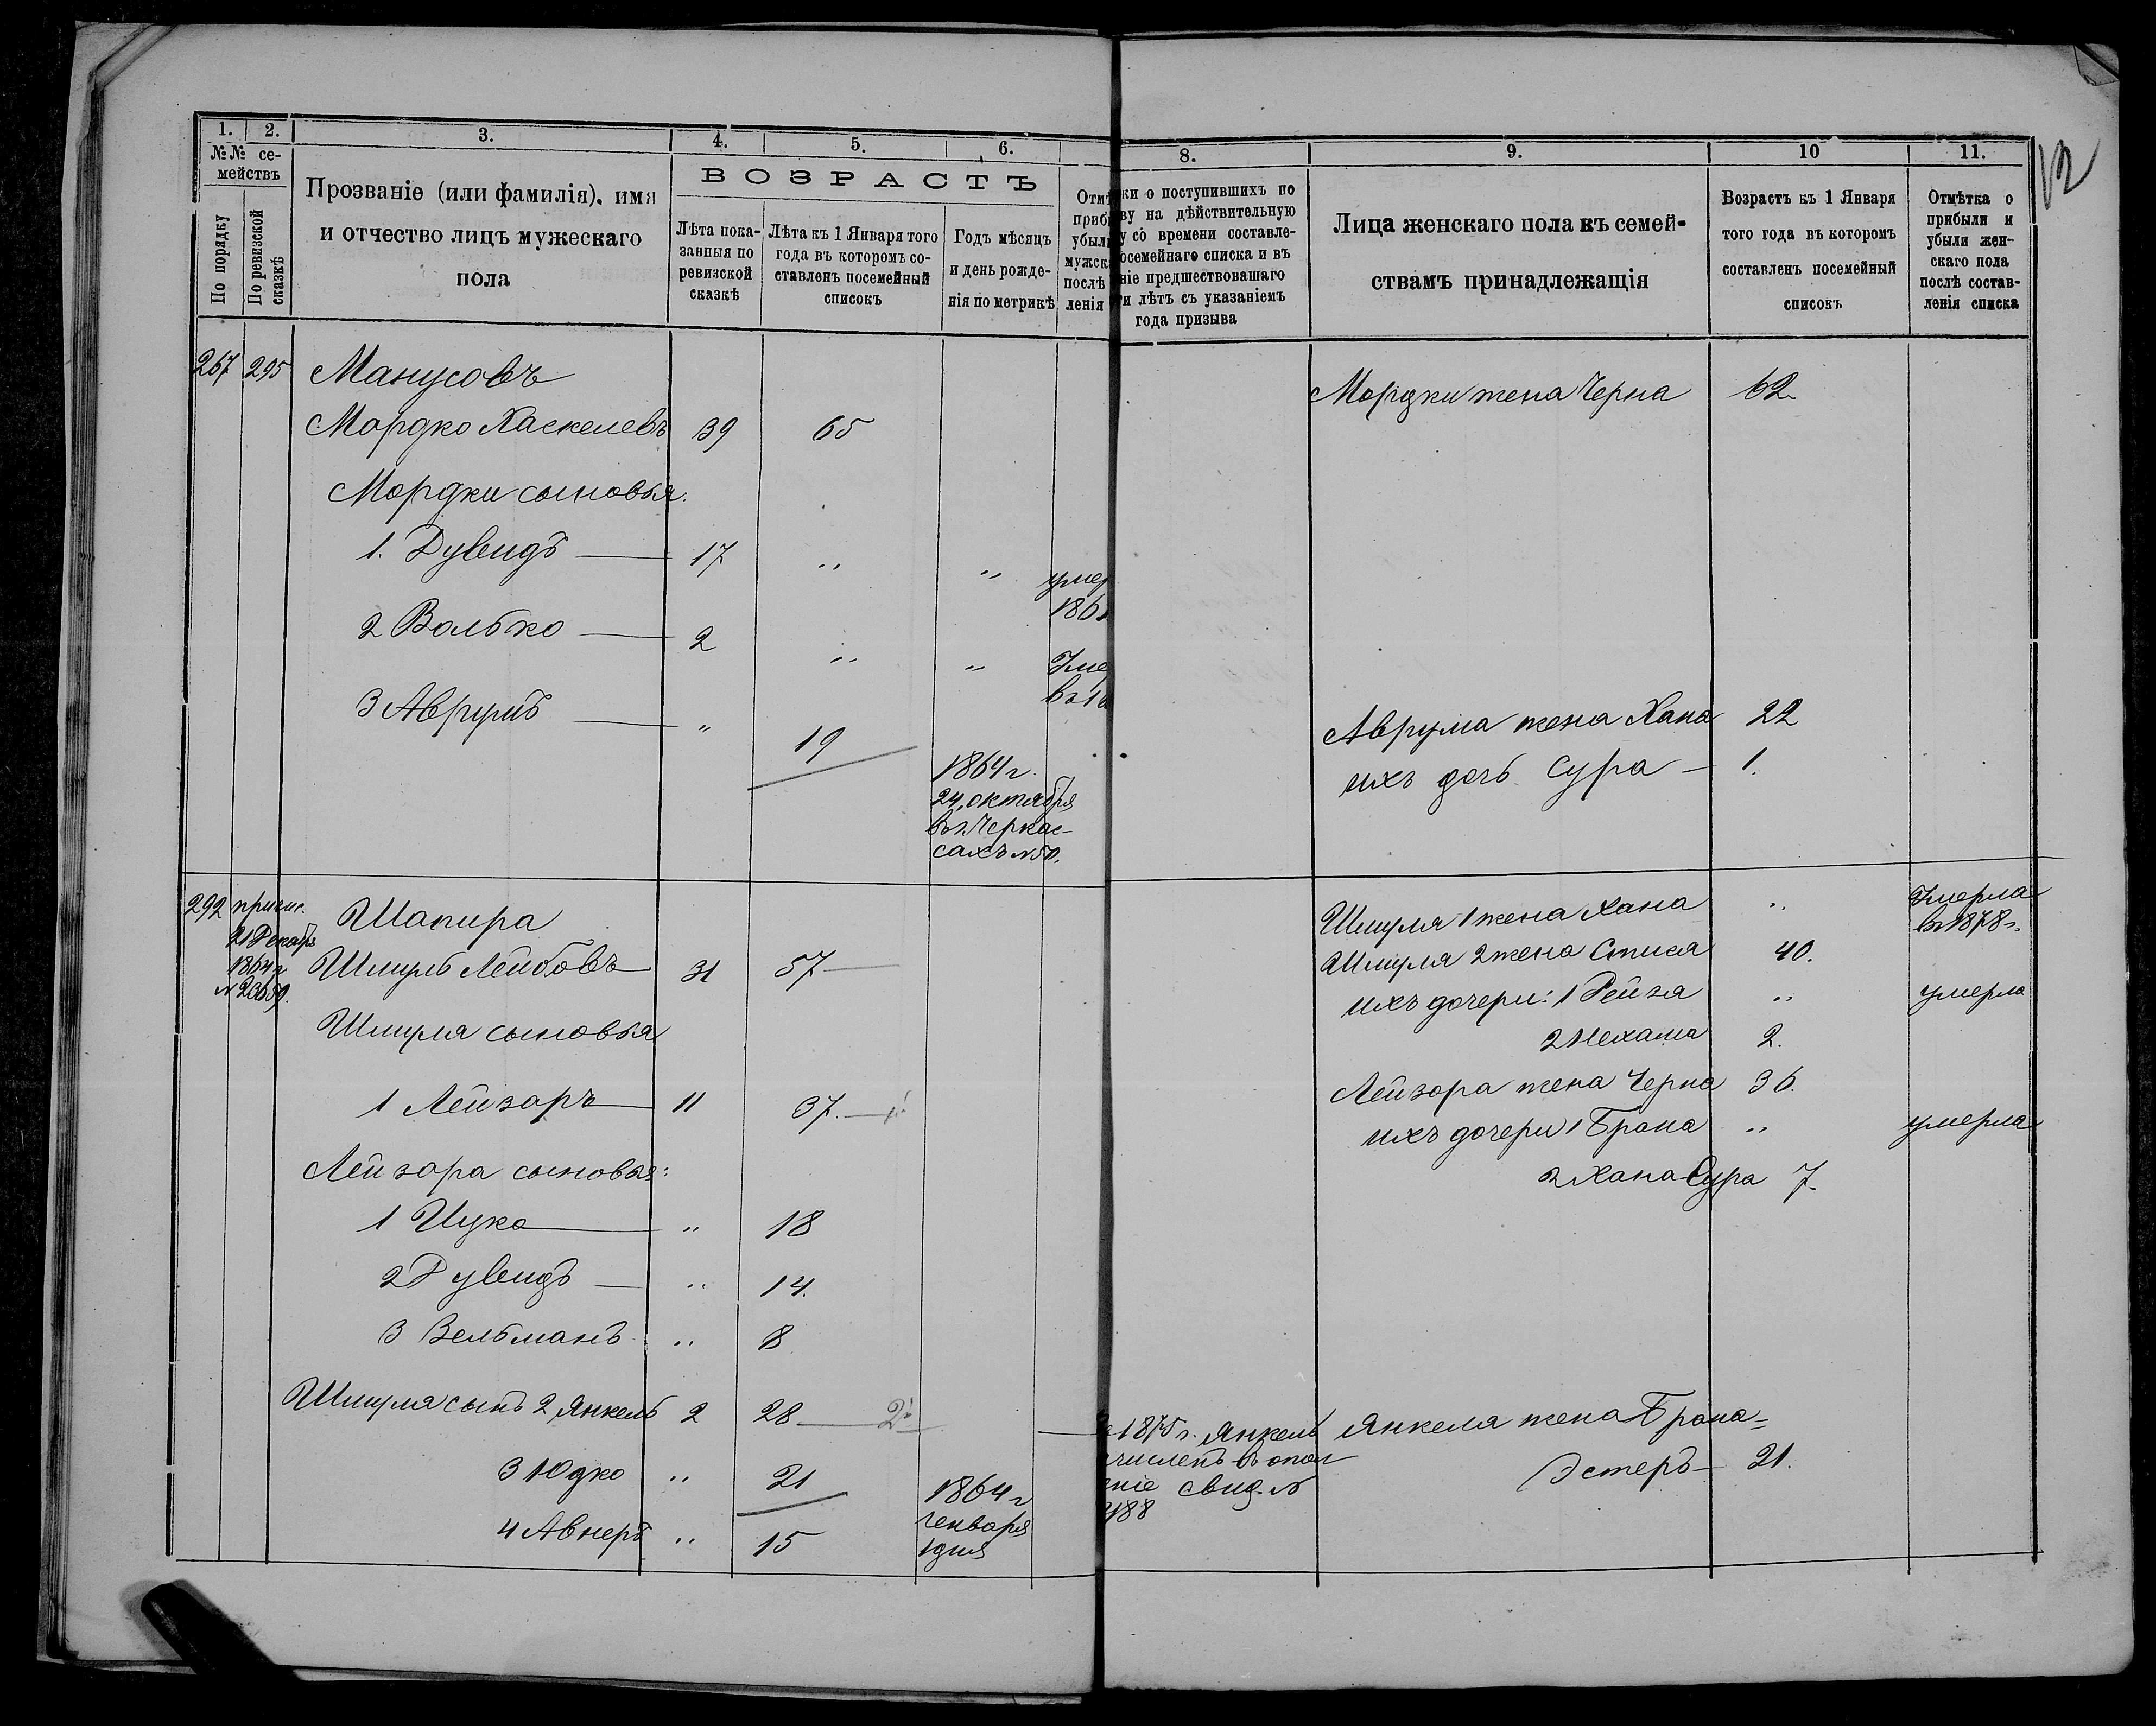 1. 2. 3. 4. 5. 6.
№№ се-
мействъ
По порядку
По ревизской
сказкѣ
Прозваніе (или фамилія), имя
и отчество лицъ мужескаго
пола
ВОЗРАСТЪ
Лѣта пока-
занныя по
ревизской
сказкѣ
Лѣта къ 1 Января того
года въ которомъ со-
ставленъ посемейный
списокъ
Годъ мѣсяцъ
и день рожде-
нія по метрикѣ
Отмѣ
приб
убыли
мужск
послѣ
ленія
267 295 Манусовъ
Мордко Хаскелевъ 39 65
Мордки сыновья:
1. Дувидъ 17 " " умер
186
2 Волько 2 " " Уме
въ 18
3 Аврумъ " 19
1864 г.
24 октября
въ г. Черкас-
сахъ № 50.
292 припис.
21 Декабр
1864 г
№ 23650.
Шапира
Шмуль Лейбовъ 31 57
Шмуля сыновья
1 Лейзоръ 11 37.
Лейзора сыновья:
1 Ицко " 18
2 Дувидъ " 14.
3 Зельманъ " 8
Шмуля сынъ 2 Янкель 2 28 2
3 Юдко " 21 1864 г
генваря
1 дня
4 Авнеръ " 15
8. 9. 10 11.
12
ки о поступившихъ по
ву на дѣйствительную
у со времени составле-
осемейнаго списка и въ
ніе предшествовашаго
ти лѣтъ съ указаніемъ
года призыва
Лица женскаго пола къ семей-
ствамъ принадлежащія
Возрастъ къ 1 Января
того года въ которомъ
составленъ посемейный
списокъ
Отмѣтка о
прибыли и
убыли жен-
скаго пола
послѣ состав-
ленія списка
Мордки жена Черна 62
Аврума жена Хана 22
ихъ дочь Сура 1.
Шмуля 1 жена Хана " Умерла
въ 1878 г.
Шмуля 2 жена 40.
ихъ дочери: 1 Рейза " умерла
2 Нехама 2.
Лейзора жена Черна 36.
ихъ дочери 1 Брана " умерла
2 Хана-Сура 7.
1875 г. Янкель
численъ въ опол
ніе свид. №
188
Янкеля жена Брана=
Эстеръ 21.